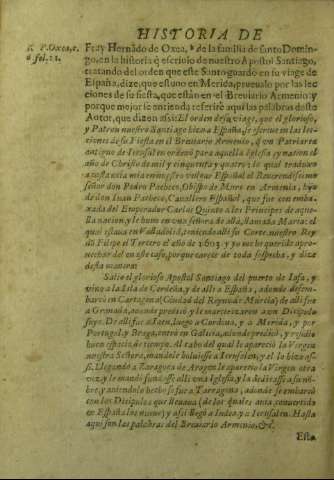 HISTORIA DE
Fray Hernãdo de Oxea, h de la familia de santo Domin-
go, en la historia q̃ escriuio de nuestro Apostol Santiago,
tratando del orden que este Santo guardò en su viage de
España, dize, que estuuo en Merida, prueualo por las lec
ciones de su fiesta, que estàn en el Breuiario Armenio: y
porque mejor se entienda referirè aqui las palabras deste
Autor, que dizen assi: El orden desu viage, que el glorioso,
y Patron nuestro Santiago hizo a España, se escriue en las lec-
ciones de su Fiesta en el Breuiario Armenio, q̃ vn Patriarca
antiguo de Ierusalẽ ordenò para aquella Iglesia y nacion el
año de Christo de mil y cinquenta y quatro: lo qual traduxo
a costa mia en nuestro vulgar Español el Reuerendissimo
señor don Pedro Pacheco, Obispo de Muro en Armenia, hijo
de don Iuan Pacheco, Cauallero Español, que fue con emba-
xada del Emperador Carlos Quinto a los Principes de aque-
lla nacion, y le huuo en vna señora de allà, llamada Maria: el
qual estaua en Valladolid, teniendo alli su Corte nuestro Rey
dõ Filipe el Tercero el año de 1603 y yo me he querido apro-
uechar del en este caso, porque carece de toda sospecha, y dize
desta manera:
Saliò el glorioso Apostol Santiago del puerto de Iafa, y
vino a la Isla de Cerdeña, y de alli a España, adonde desem-
barcò en Cartagena (Ciudad del Reyno de Murcia) de alli fue
a Granada, adonde predicò y le martirizaron vn Dicipulo
suyo. De alli fue a Iaen, luego a Cordoua, y a Merida, y por
Portugal y Braga, entrò en Galicia, adonde predicò, y residiò
buen espacio de tiempo. Al cabo del qual le apareciò la Virgen
nuestra Señora, mandole boluiesse a Ierusalen, y el lo hizo as-
si. Llegando a Zaragoza de Aragon le apareciò la Virgen otra
vez, y le mandò fundasse alli vna Iglesia, y la dedicasse a su nõ-
bre, y auiendolo hecho se fue a Tarragona, adonde se embarcò
con los Dicipulos que lleuaua (de los quales auia conuertido
en España los nueue) y assi llegò a Iudea, y a Ierusalen. Hasta
aqui son las palabras del Breuiario Armenio, &c.
Esta